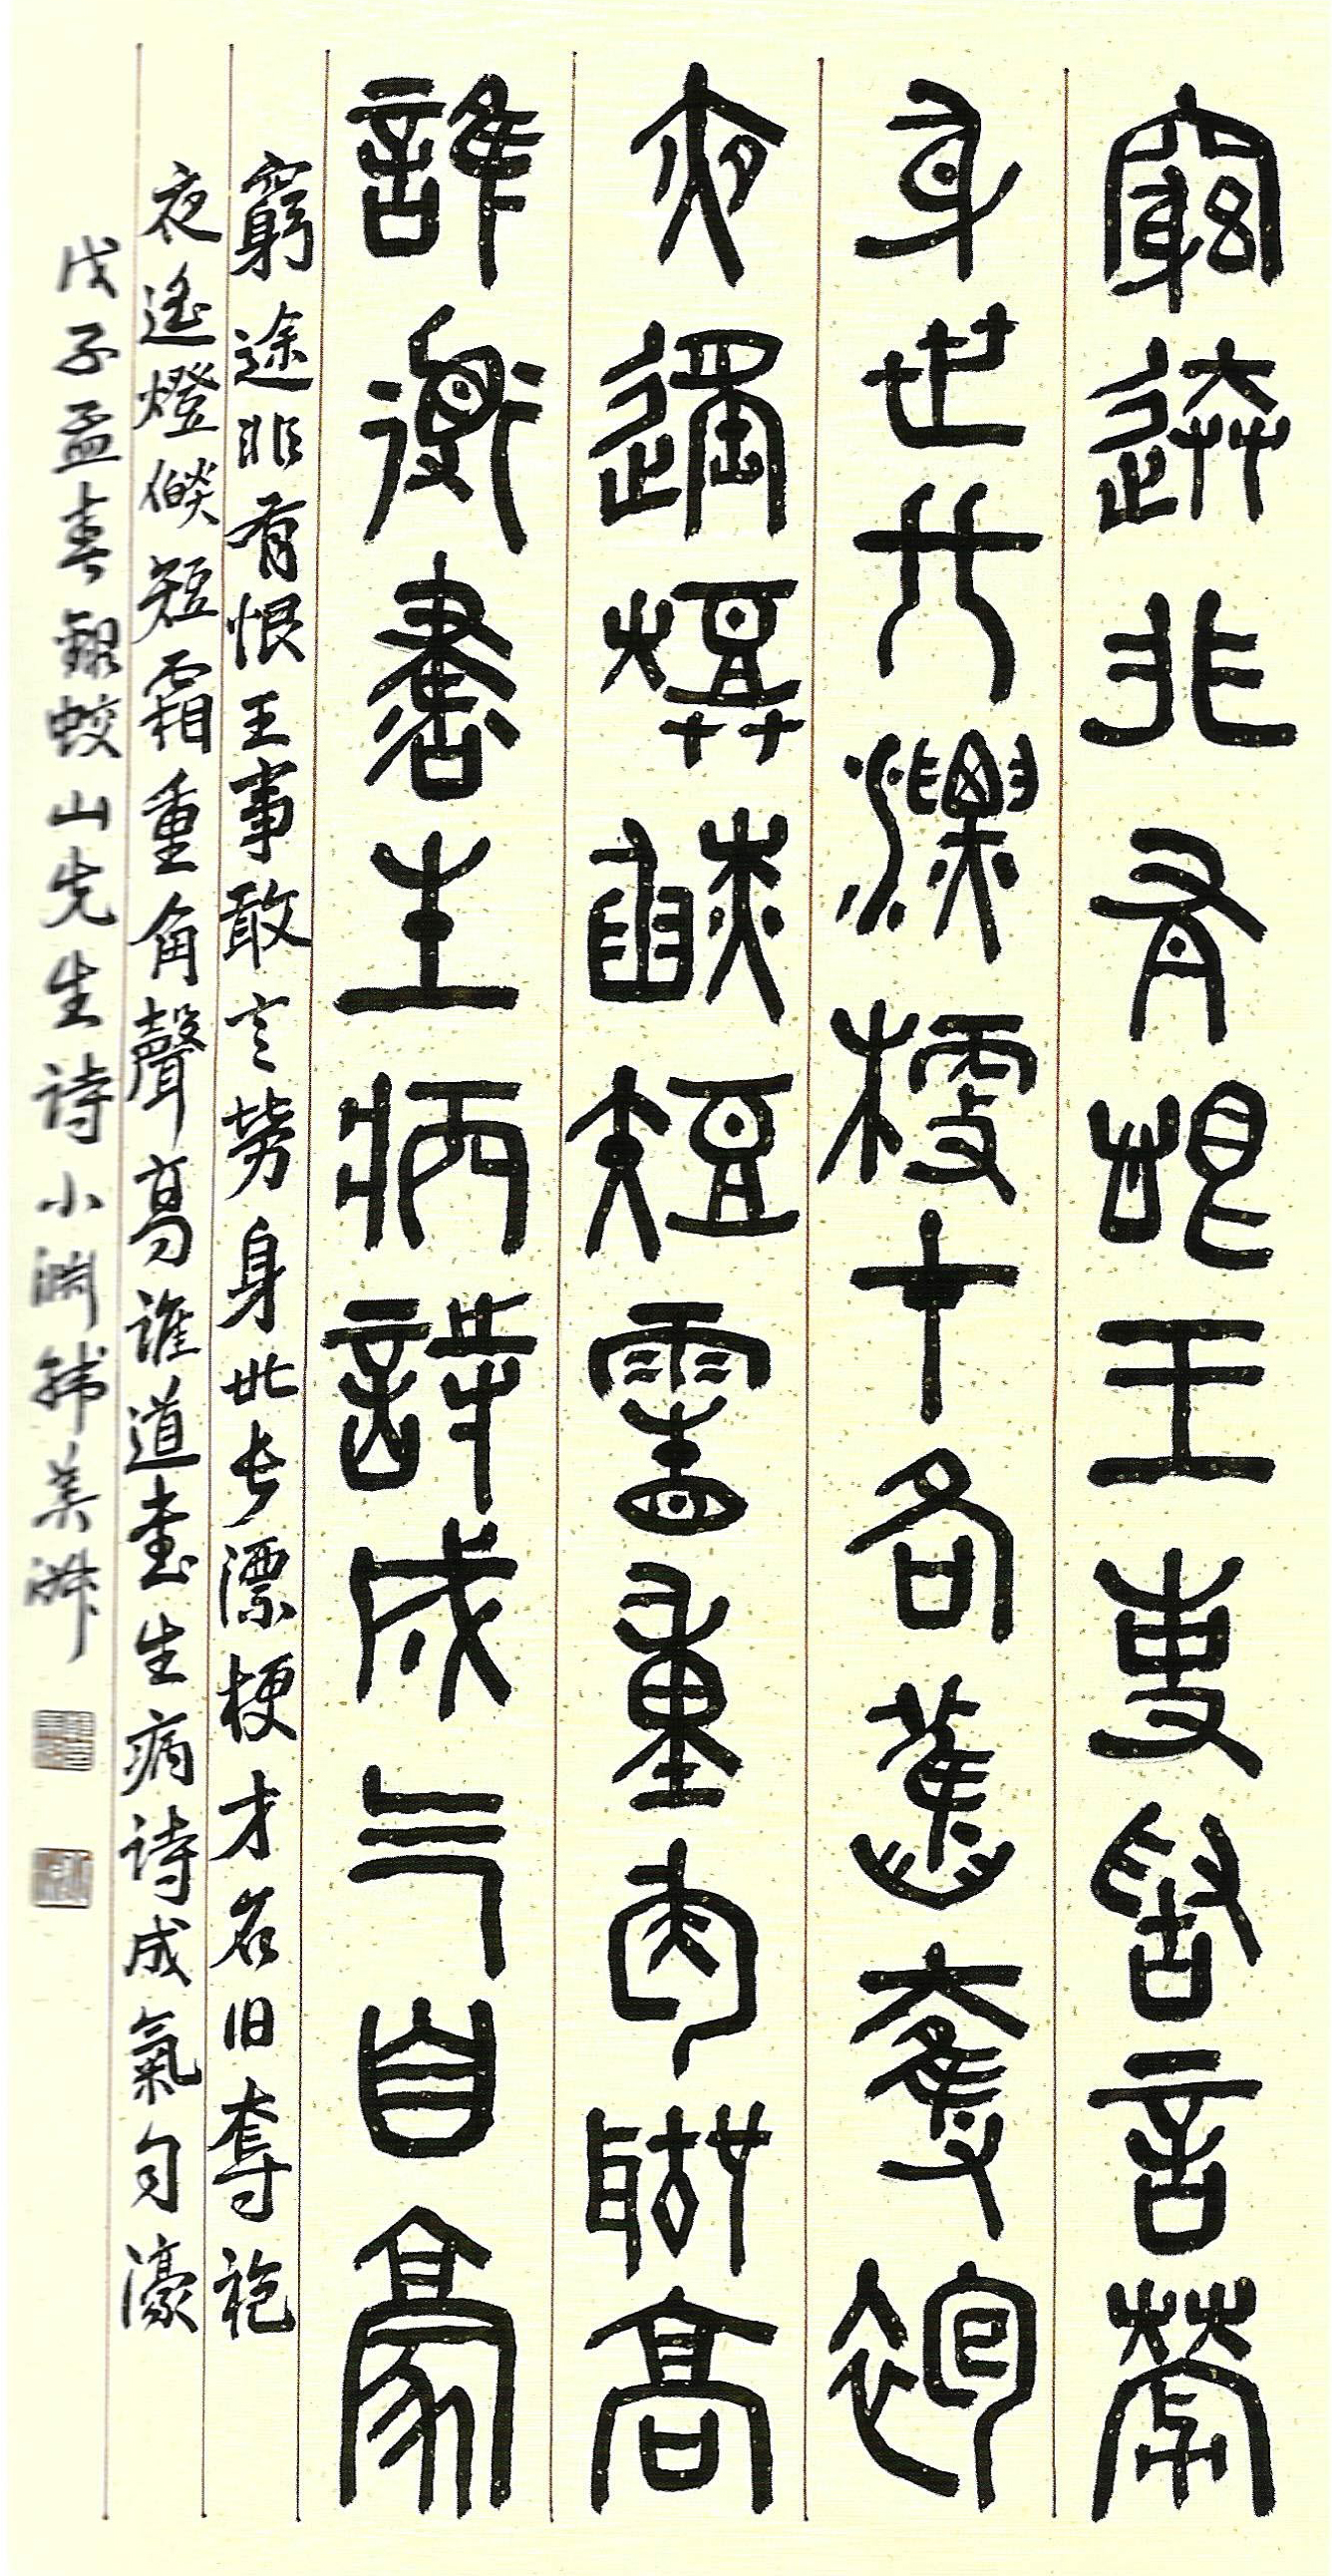 窮途非有恨王事敢言勞
身世長漂梗才名舊奪袍
夜遙燈燄短霜重角聲高
誰道書生病詩成氣自豪
窮途非有恨王事敢言勞身世長漂梗才名旧奪袍
夜遙燈燄短霜重角聲高誰道書生病詩成氣自濠
戊子孟春錄蛟山先生诗小渊韩美